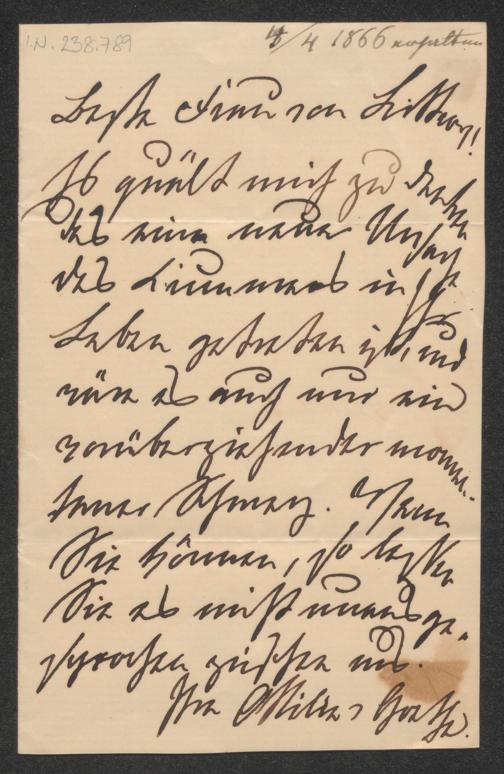 I.N. 238.789
4/4 1866 erhalten
Beste Frau von Littrow!
Es quält mich zu denken
daß eine neue Ursache
des Kummers in Ihr
Leben getreten ist, und
wäre es auch nur ein
vorüberziehender momen-
taner Schmerz. Wenn
Sie können, so lassen
Sie es nicht unausge-
sprochen zwischen uns.
Ihre Ottilie v Goethe.